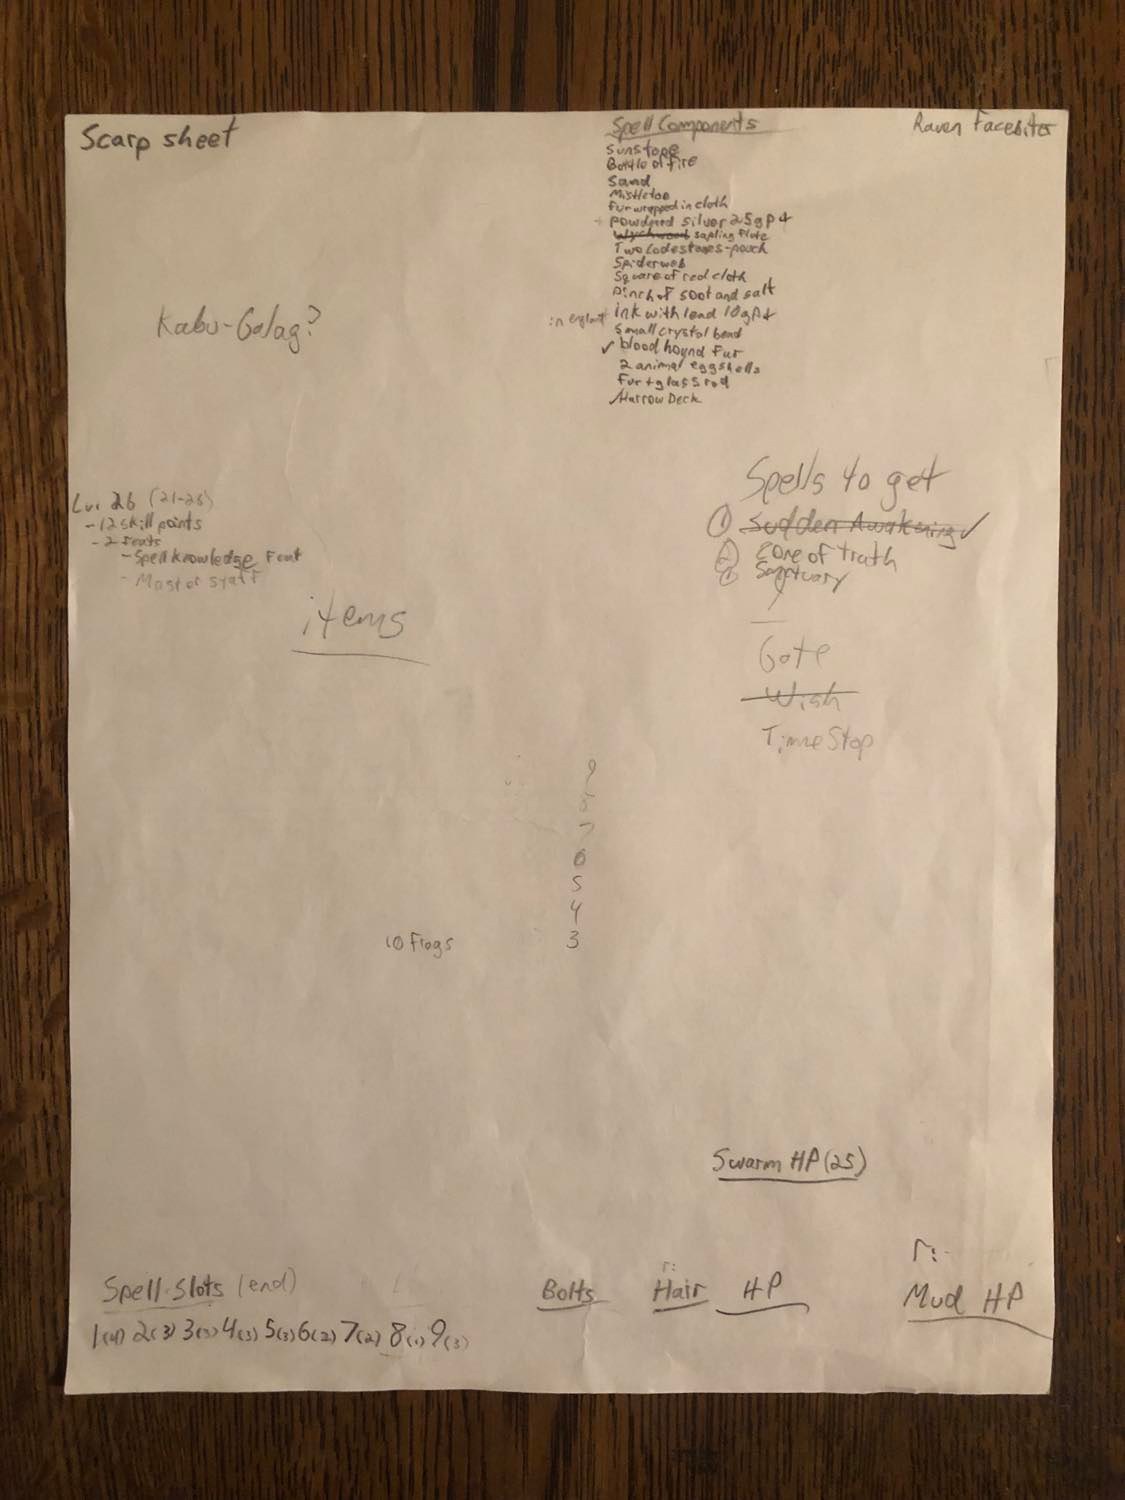 Scarp sheet
Raven Facebiter
Spell Components
Sunstone
Bottle of fire
Sand
Mistletoe
Fur wrapped in cloth
+ powdered silver 25gp +
Wychwood sapling flute
Two lodestones-pouch
Spiderweb
Square of red cloth
Pinch of soot and salt
ink with lead 10gp+
Small crystal bead
✓ blood hound fur
2 animal eggshells
Fur + glass rod
✓ Harrow Deck
Kabu-Galag?
Lvl 26 (21-26)
-12 skill points
-2 feats
-Spell knowledge Feat
- Master staff
items
Spells to get
① Sudden Awakening ✓
② Zone of truth
Sanctuary
Gate
Wish
Time Stop
9
8
7
6
5
4
10 Flags 3
Swarm HP (25)
r:
Spell Slots (end)
Bolts
r:
Hair HP
Mud HP
1(4) 2(3) 3(3) 4(3) 5(3) 6(2) 7(2) 8(1) 9(3)